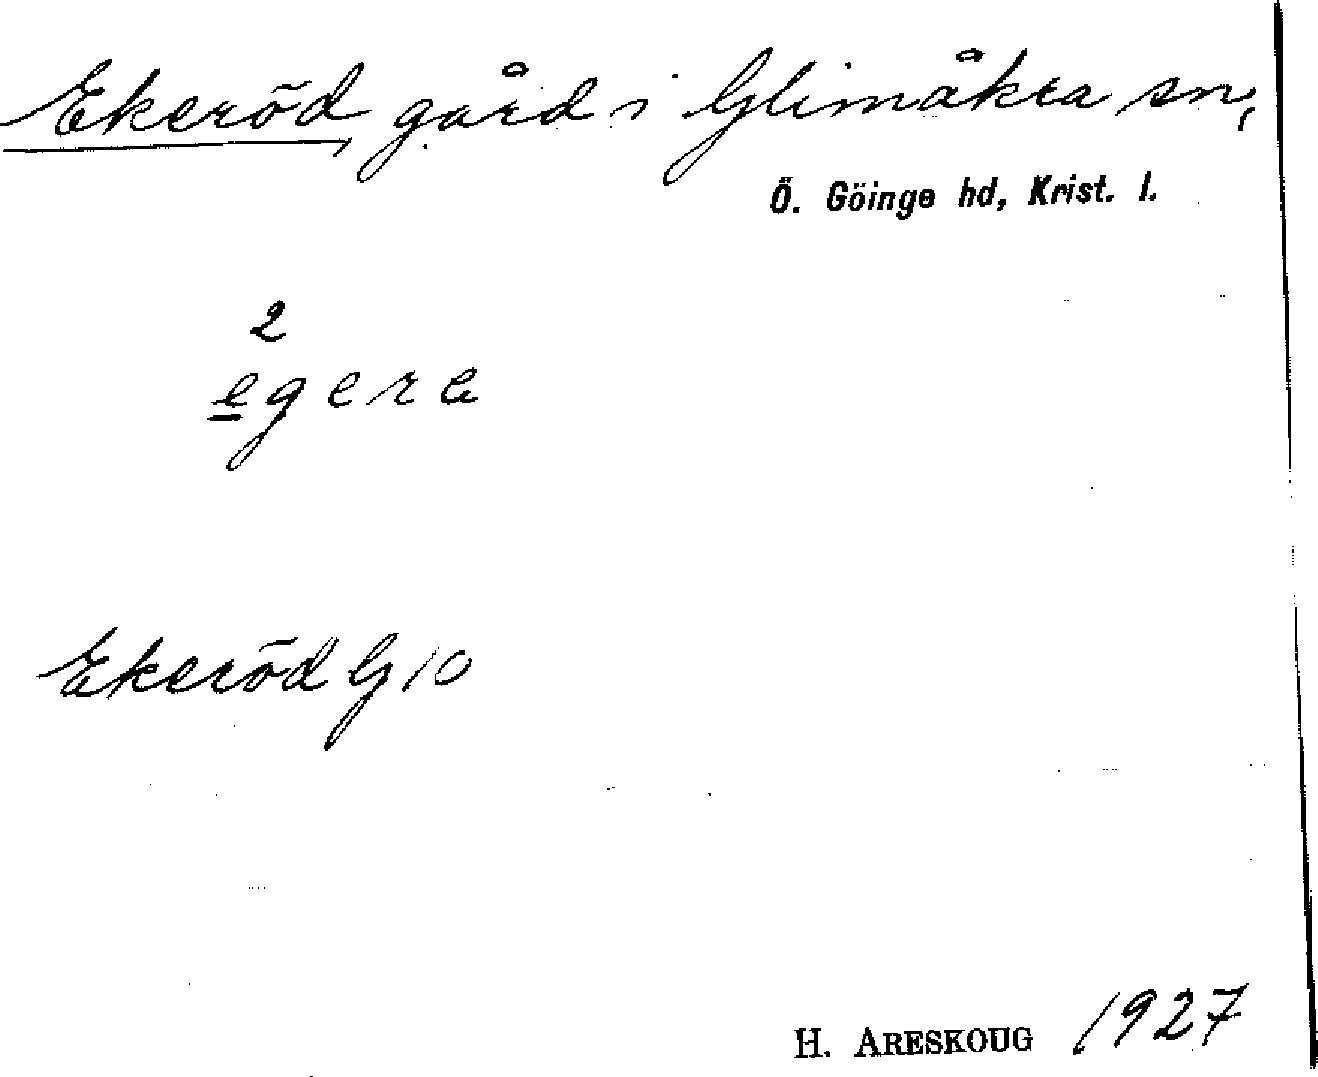 Ekeröd, gård i Glimåkra sn,
Ö. Göinge hd, Krist. l.
2
egere
Ekeröd G 10
H. ARESKOUG 1927